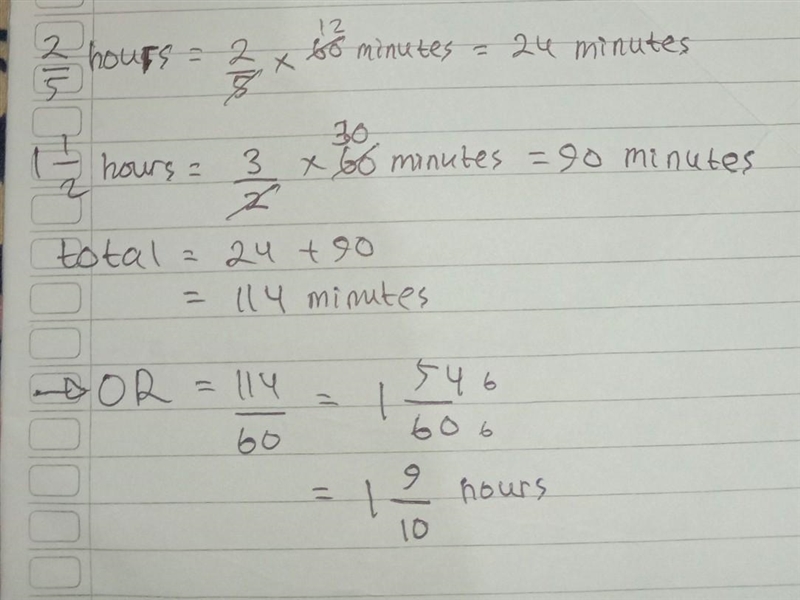 2/5 hours = 2/5 × 60 12 minutes = 24 minutes
1 1/2 hours = 3/2 × 60 30 minutes = 90 minutes
total = 24 + 90
= 114 minutes
→ OR = 114/60 = 1 54/60 6 6
= 1 9/10 hours